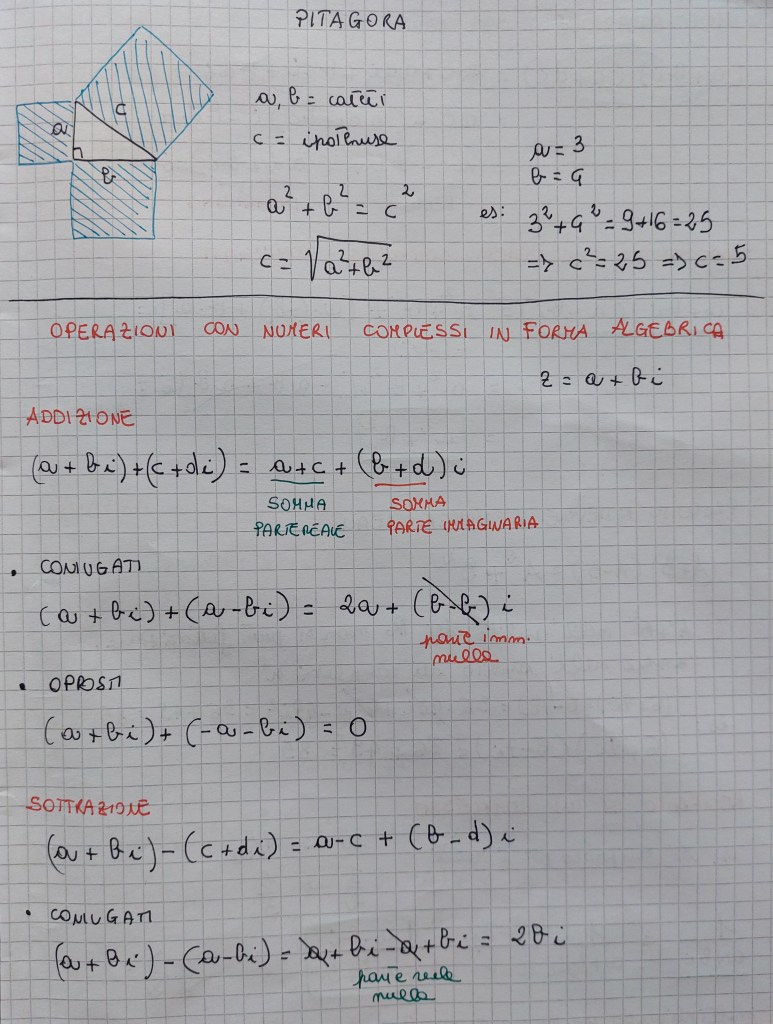 PITAGORA
a
c
b
a, b = cateti
c = ipotenusa
a² + b² = c²
c = √(a²+b²)
a = 3
b = 4
es: 3² + 4² = 9+16 = 25
=> c² = 25 => c = 5
OPERAZIONI CON NUMERI COMPLESSI IN FORMA ALGEBRICA
z = a + bi
ADDIZIONE
(a + bi) + (c + di) = a+c + (b+d) i
SOMMA PARTE REALE
SOMMA PARTE IMMAGINARIA
• CONIUGATI
(a + bi) + (a - bi) = 2a + (b-b) i
parte imm. nulla
• OPPOSTI
(a + bi) + (-a - bi) = 0
SOTTRAZIONE
(a + bi) - (c + di) = a-c + (b-d) i
• CONIUGATI
(a + bi) - (a - bi) = a + bi - a + bi = 2bi
parte reale nulla